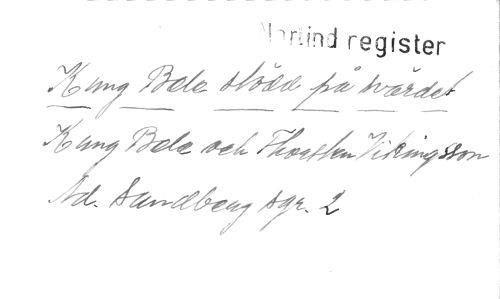 Norlind register
Kung Bele stödd på svärdet
Kung Bele och Thorsten Vikingsson
Ad. Sandberg sgr. 2